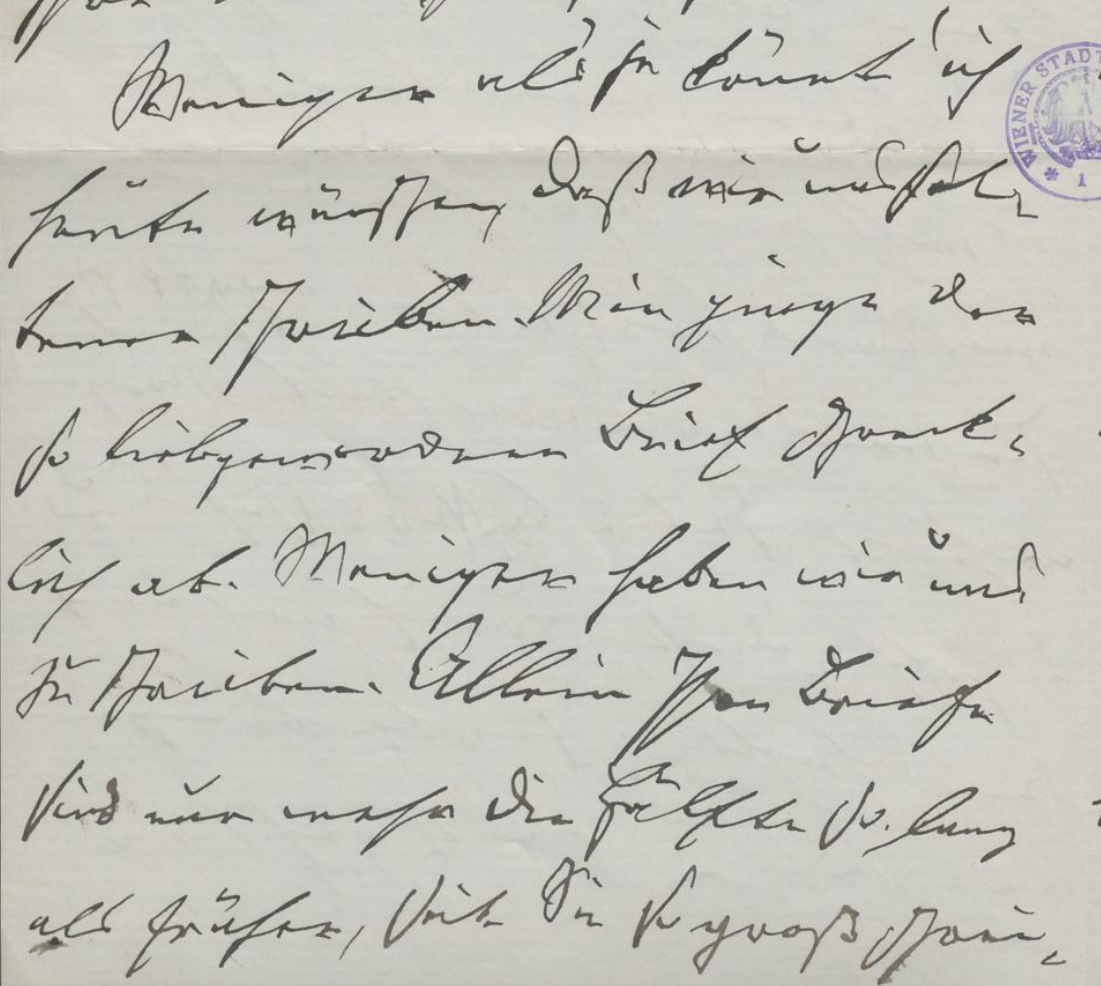 Weniger als je könnt' ich
heute wünschen, daß wir uns sel-
tener schreiben. Mir ginge der
so liebgewordene Brief schreck-
lich ab. Weniger haben wir uns
zu schreiben. Allein Ihre Briefe
sind nur mehr die Hälfte so lang
als früher, seit Sie so groß schrei-
WIENER STADT
* 1